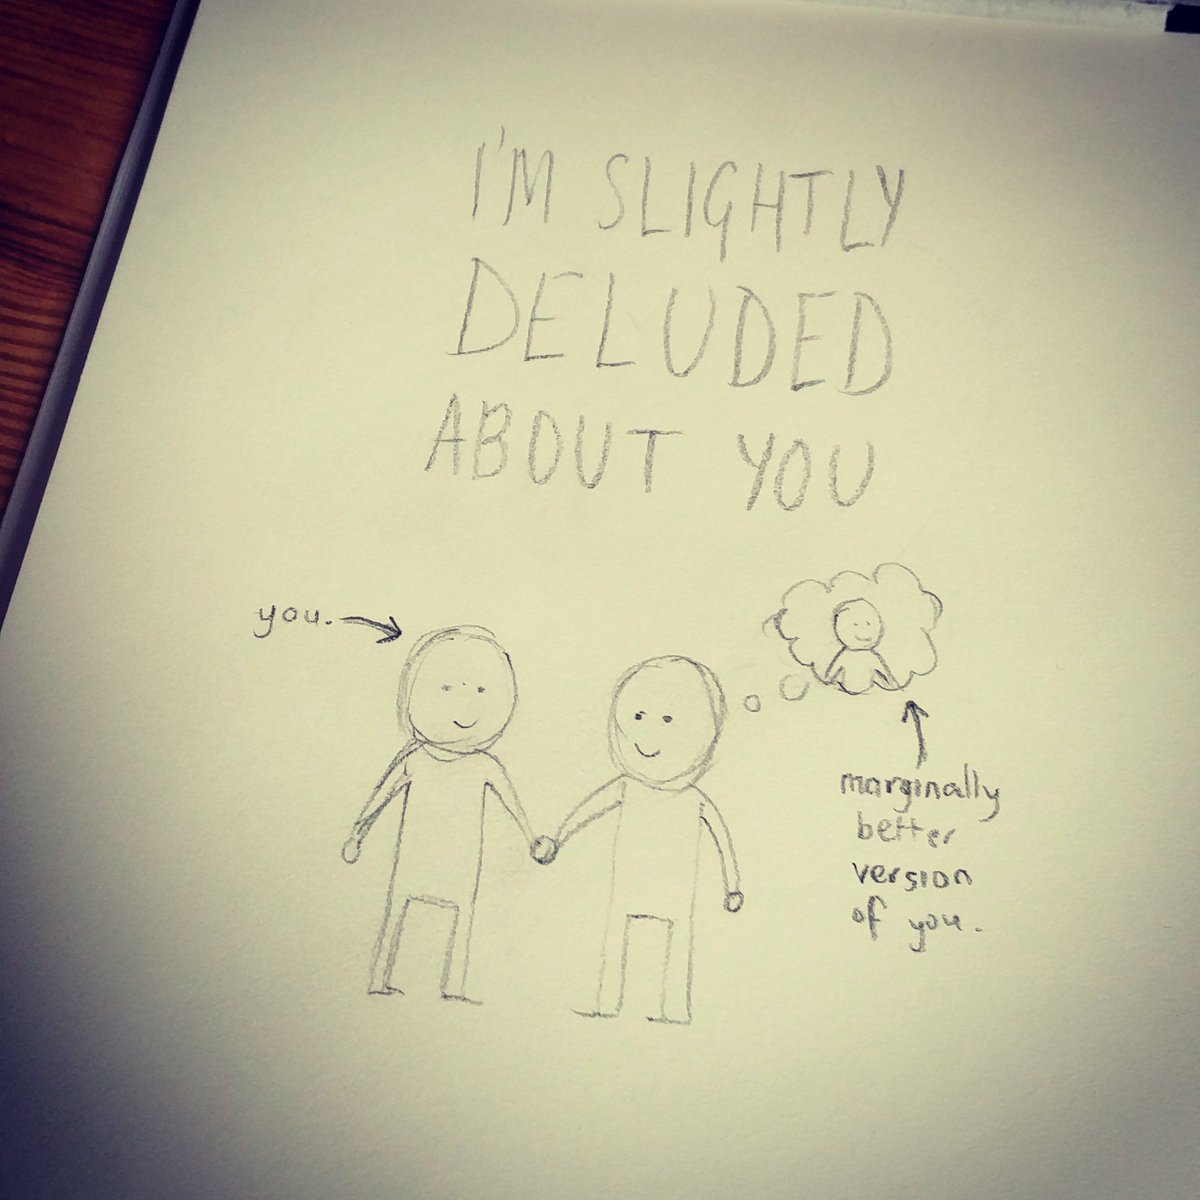 I'M SLIGHTLY
DELUDED
ABOUT YOU
you.
marginally
better
version
of you.